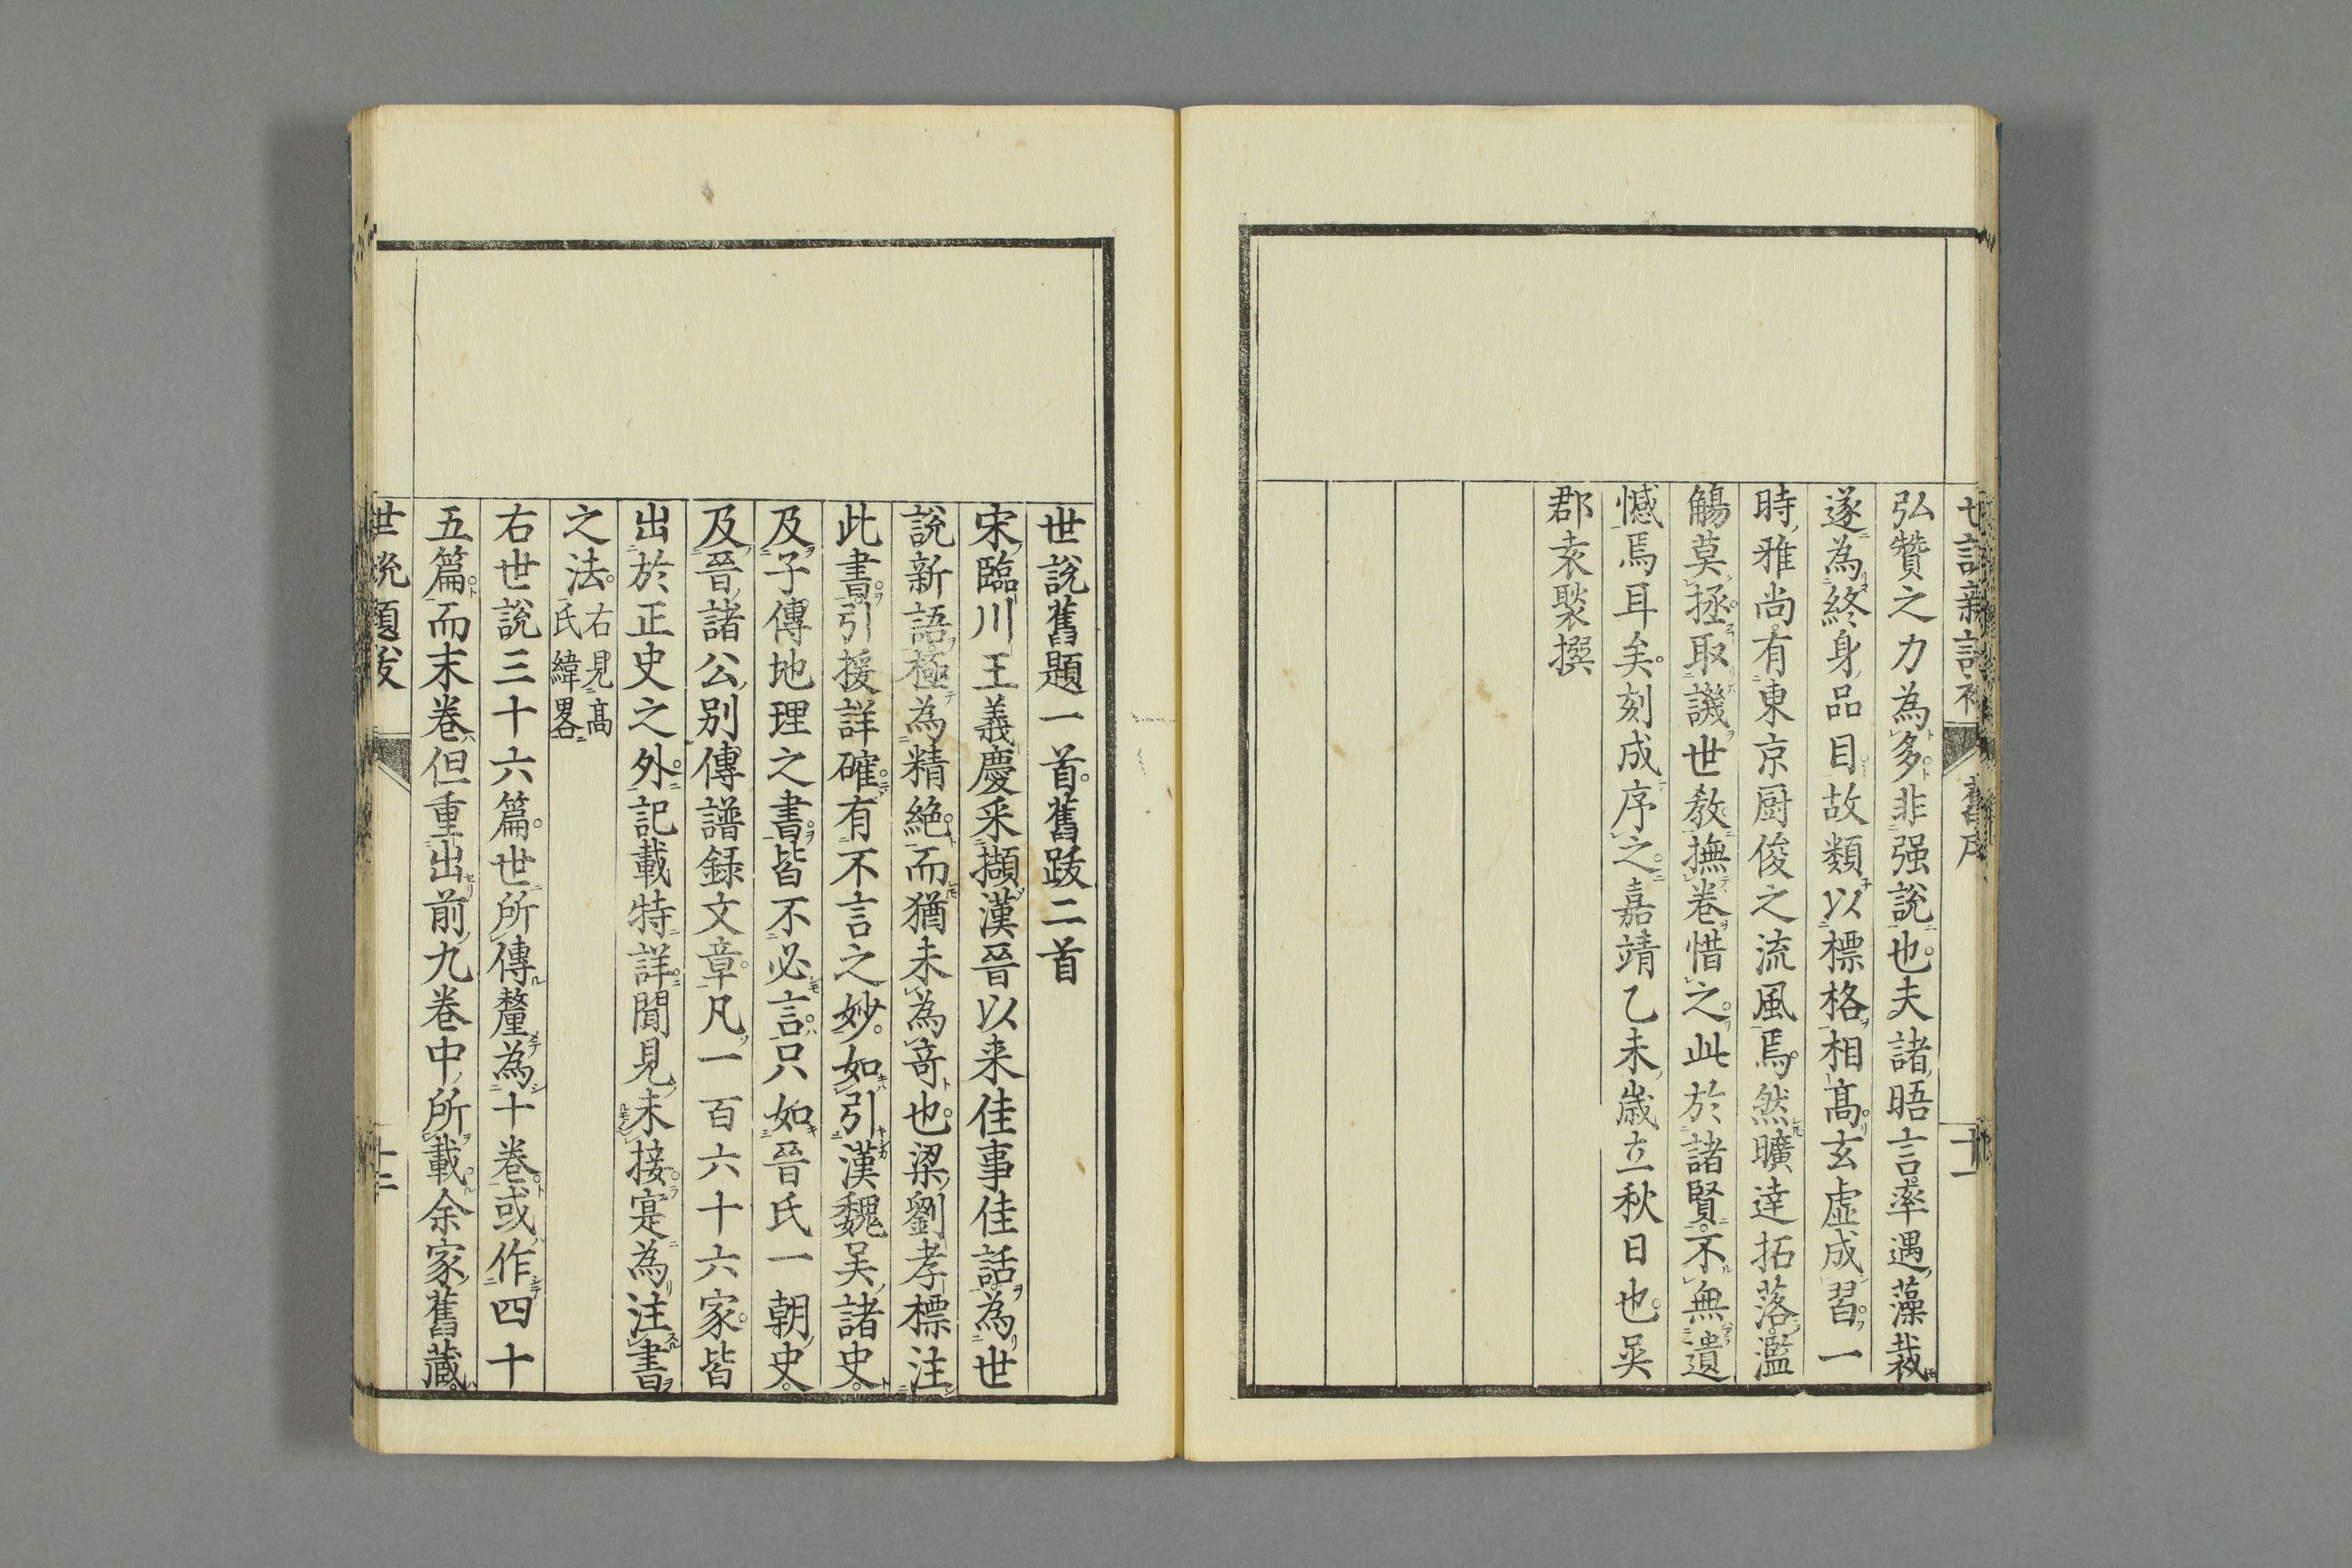 弘贊之力為多非强說也夫諸晤言率遇藻裁
遂為終身品目故類以標格相髙玄虛成習一
時雅尚有東京厨俊之流風焉然曠達拓落濫
觴莫拯取譏世敎撫卷惜之此於諸賢不無遺
憾焉耳矣刻成序之嘉靖乙未歲立秋日也吳
郡袁褧撰
世說舊題一首舊跋二首
宋臨川王義慶采擷漢晉以来佳事佳話為世
說新語極為精絶而猶未為竒也梁劉孝標注
此書引援詳確有不言之妙如引漢魏吴諸史
及子傳地理之書皆不必言只如晉氏一朝史
及晉諸公別傳譜録文章凡一百六十六家皆
出於正史之外記載特詳聞見未接寔為注書
之法右見髙氏緯畧
右世說三十六篇世所傳釐為十卷或作四十
五篇而末卷但重出前九卷中所載余家舊藏
世說題跋
十二